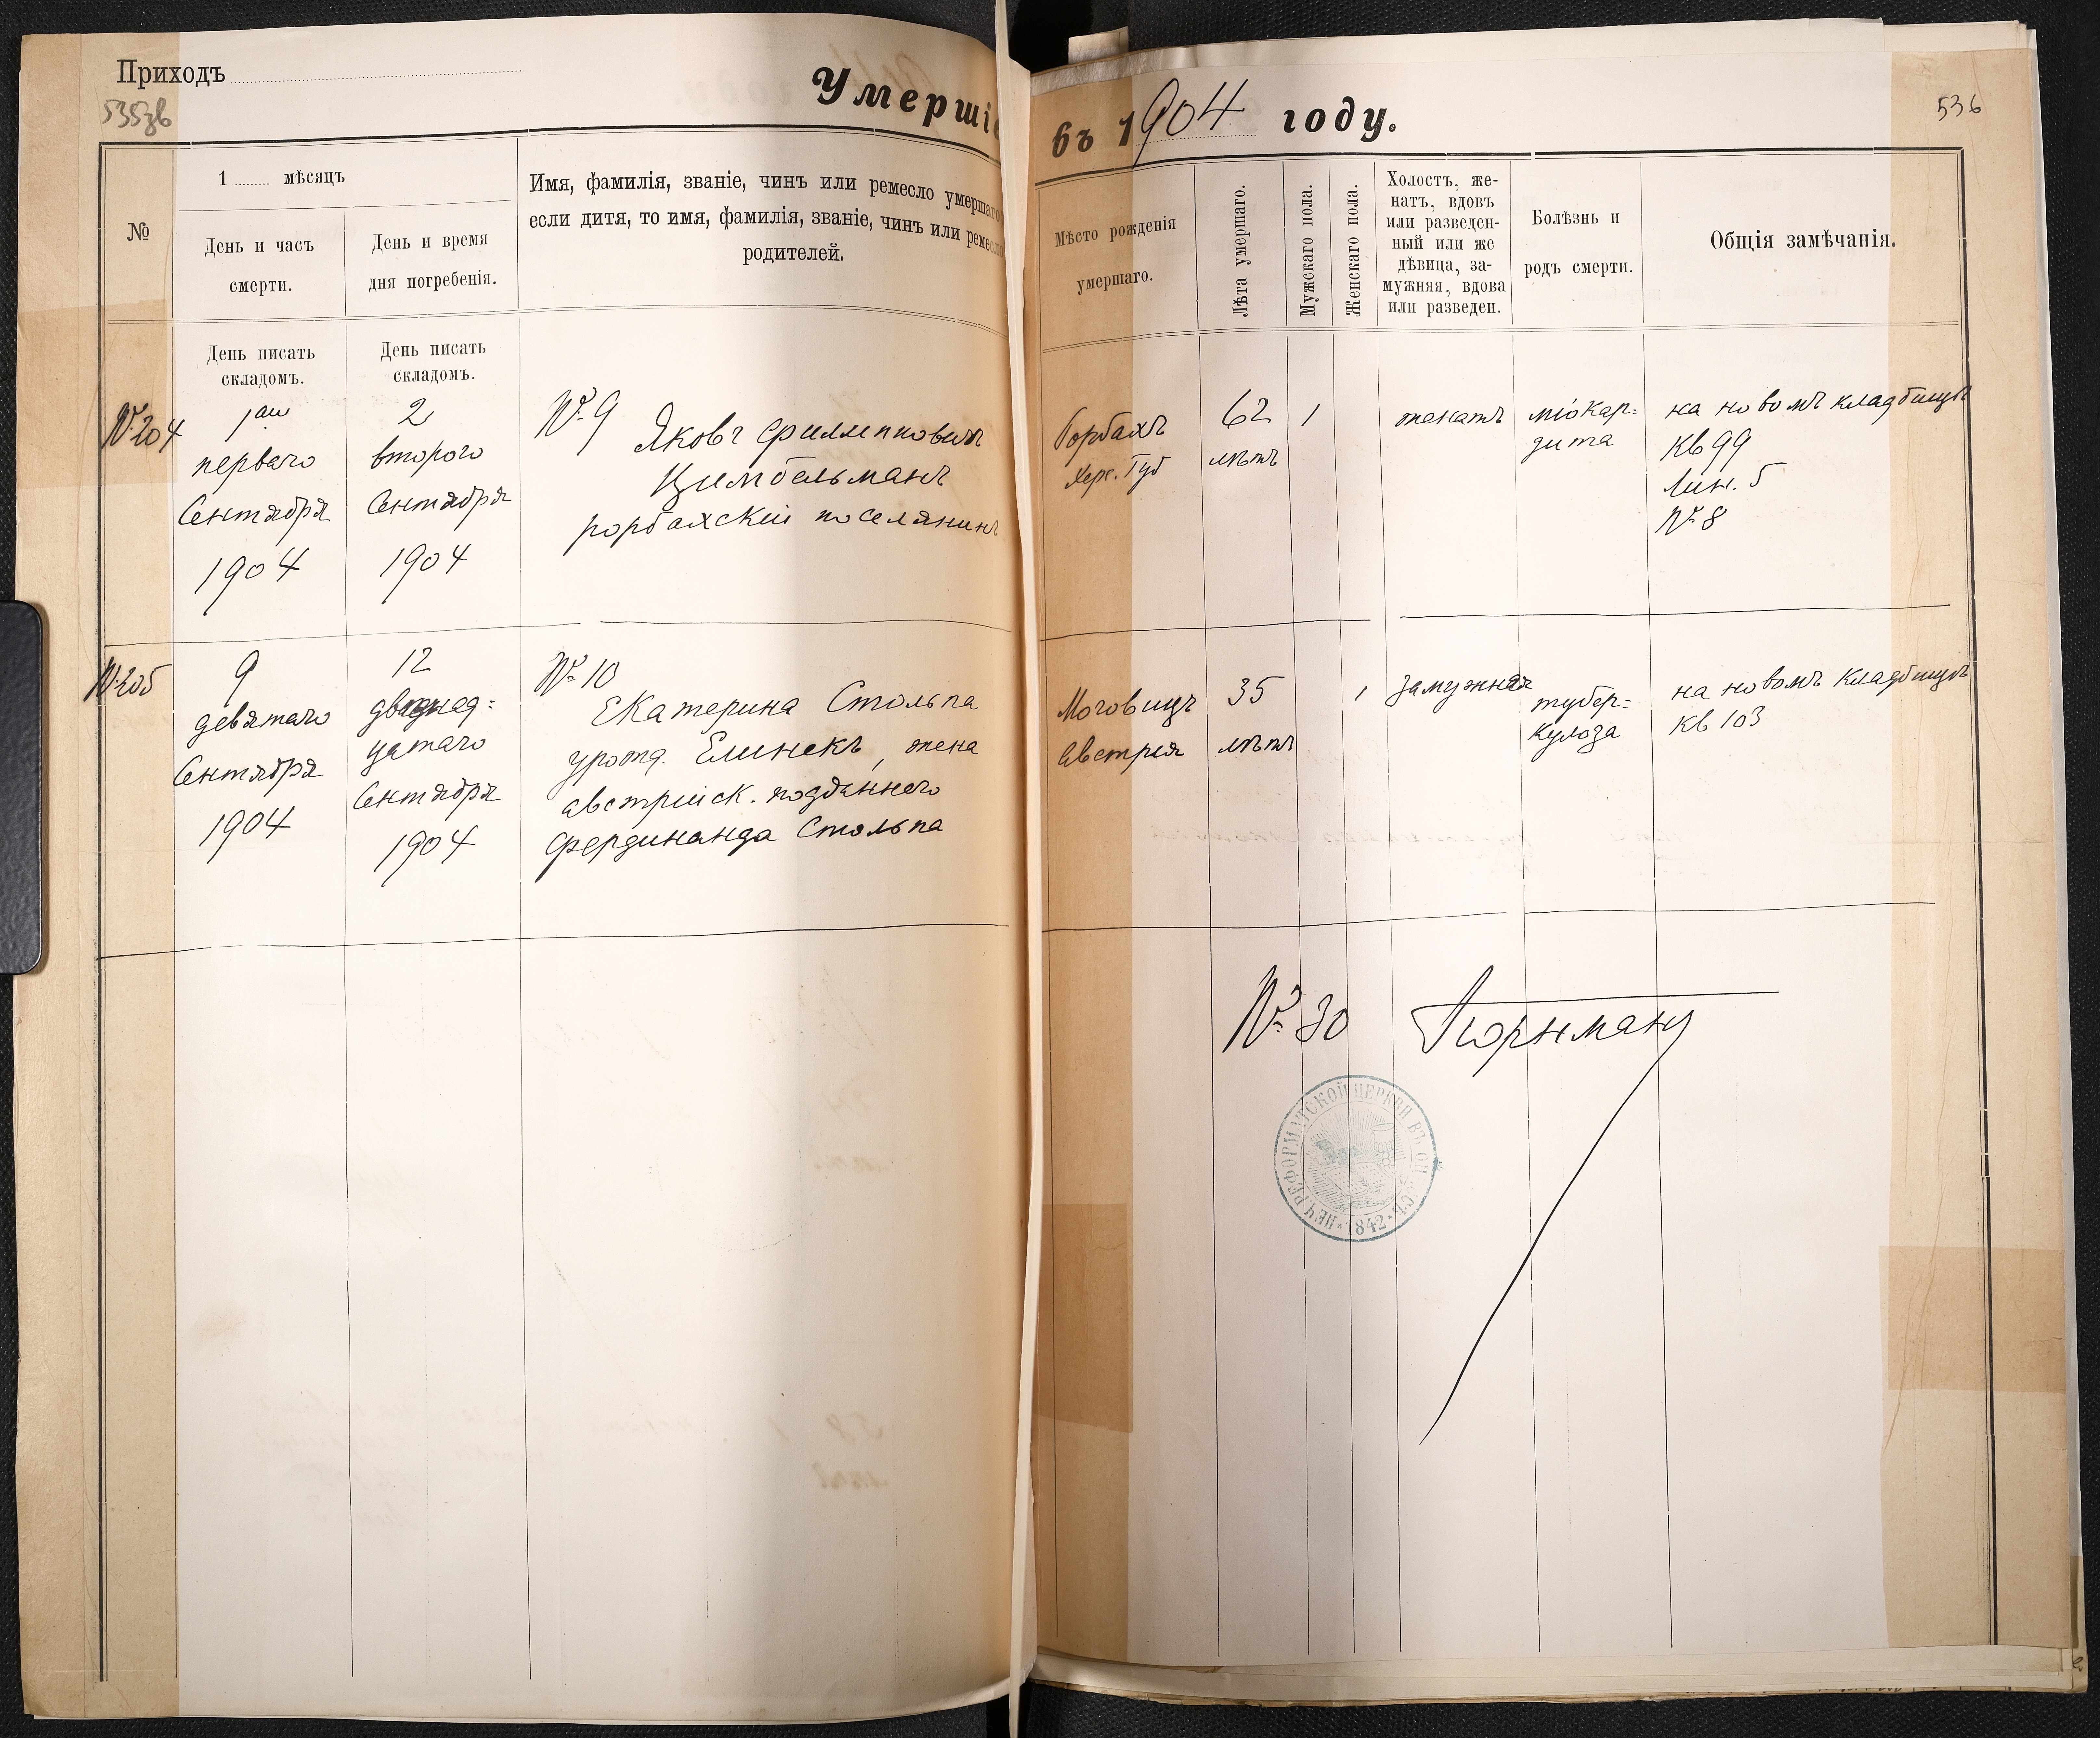 Приходъ
535зв
Умершіе
въ 1904 году.
536
№
1 ........ мѣсяцъ
День и часъ
смерти.
День и время
дня погребенія.
Имя, фамилія, званіе, чинъ или ремесло умершаго
если дитя, то имя, фамилія, званіе, чинъ или ремесло
родителей.
Мѣсто рожденія
умершаго.
Лѣта умершаго.
Мужскаго пола.
Женскаго пола.
Холостъ, же-
натъ, вдовъ
или разведен-
ный или же
дѣвица, за-
мужняя, вдова
или разведен.
Болѣзнь и
родъ смерти.
Общія замѣчанія.
День писать
складомъ.
День писать
складомъ.
№ 204
1го
перваго
Сентября
1904
2
второго
Сентября
1904
№ 9
Яковъ Филипповичъ
Цимбельманъ
рорбахскій поселянинъ
Рорбахъ
Херс. Губ
62
лѣтъ
1
женатъ
міокар=
дита
на новомъ кладбищѣ
Кв 99
Лин. 5
№ 8
№ 205
9
девятаго
Сентября
1904
12
двѣнад=
цатаго
Сентября
1904
№ 10
Екатерина Стольпа
урожд. Елинекъ, жена
австрійск. подданнаго
Фердинанда Стольпа
Моговицъ
Австрія
35
лѣтъ
1
замужняя
тубер=
кулоза
на новомъ кладбищѣ
кв 103
№ 30
ПЕЧ. РЕФОРМАТСКОЙ ЦЕРКВИ ВЪ ОДЕССѢ
1842